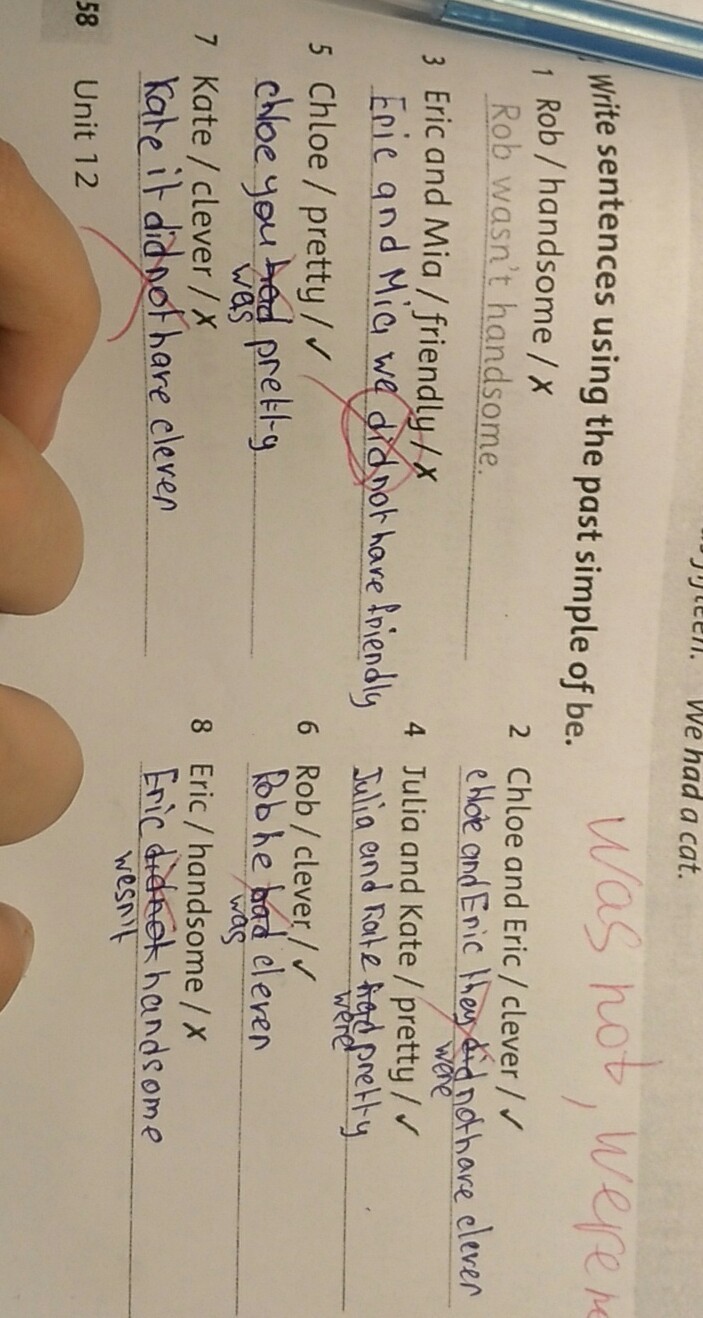 We had a cat.
Write sentences using the past simple of be.
was not, were
1 Rob / handsome / ✗
Rob wasn't handsome.
2 Chloe and Eric / clever / ✓
chloe and Eric they did not have clever
were
3 Eric and Mia / friendly / ✗
Eric and Mia we did not have friendly
4 Julia and Kate / pretty / ✓
Julia and Kate had pretty
were
5 Chloe / pretty / ✓
chloe you had pretty
was
6 Rob / clever / ✓
Rob he had clever
was
7 Kate / clever / ✗
Kate it did not have clever
8 Eric / handsome / ✗
Eric did not handsome
wesn't
58 Unit 12